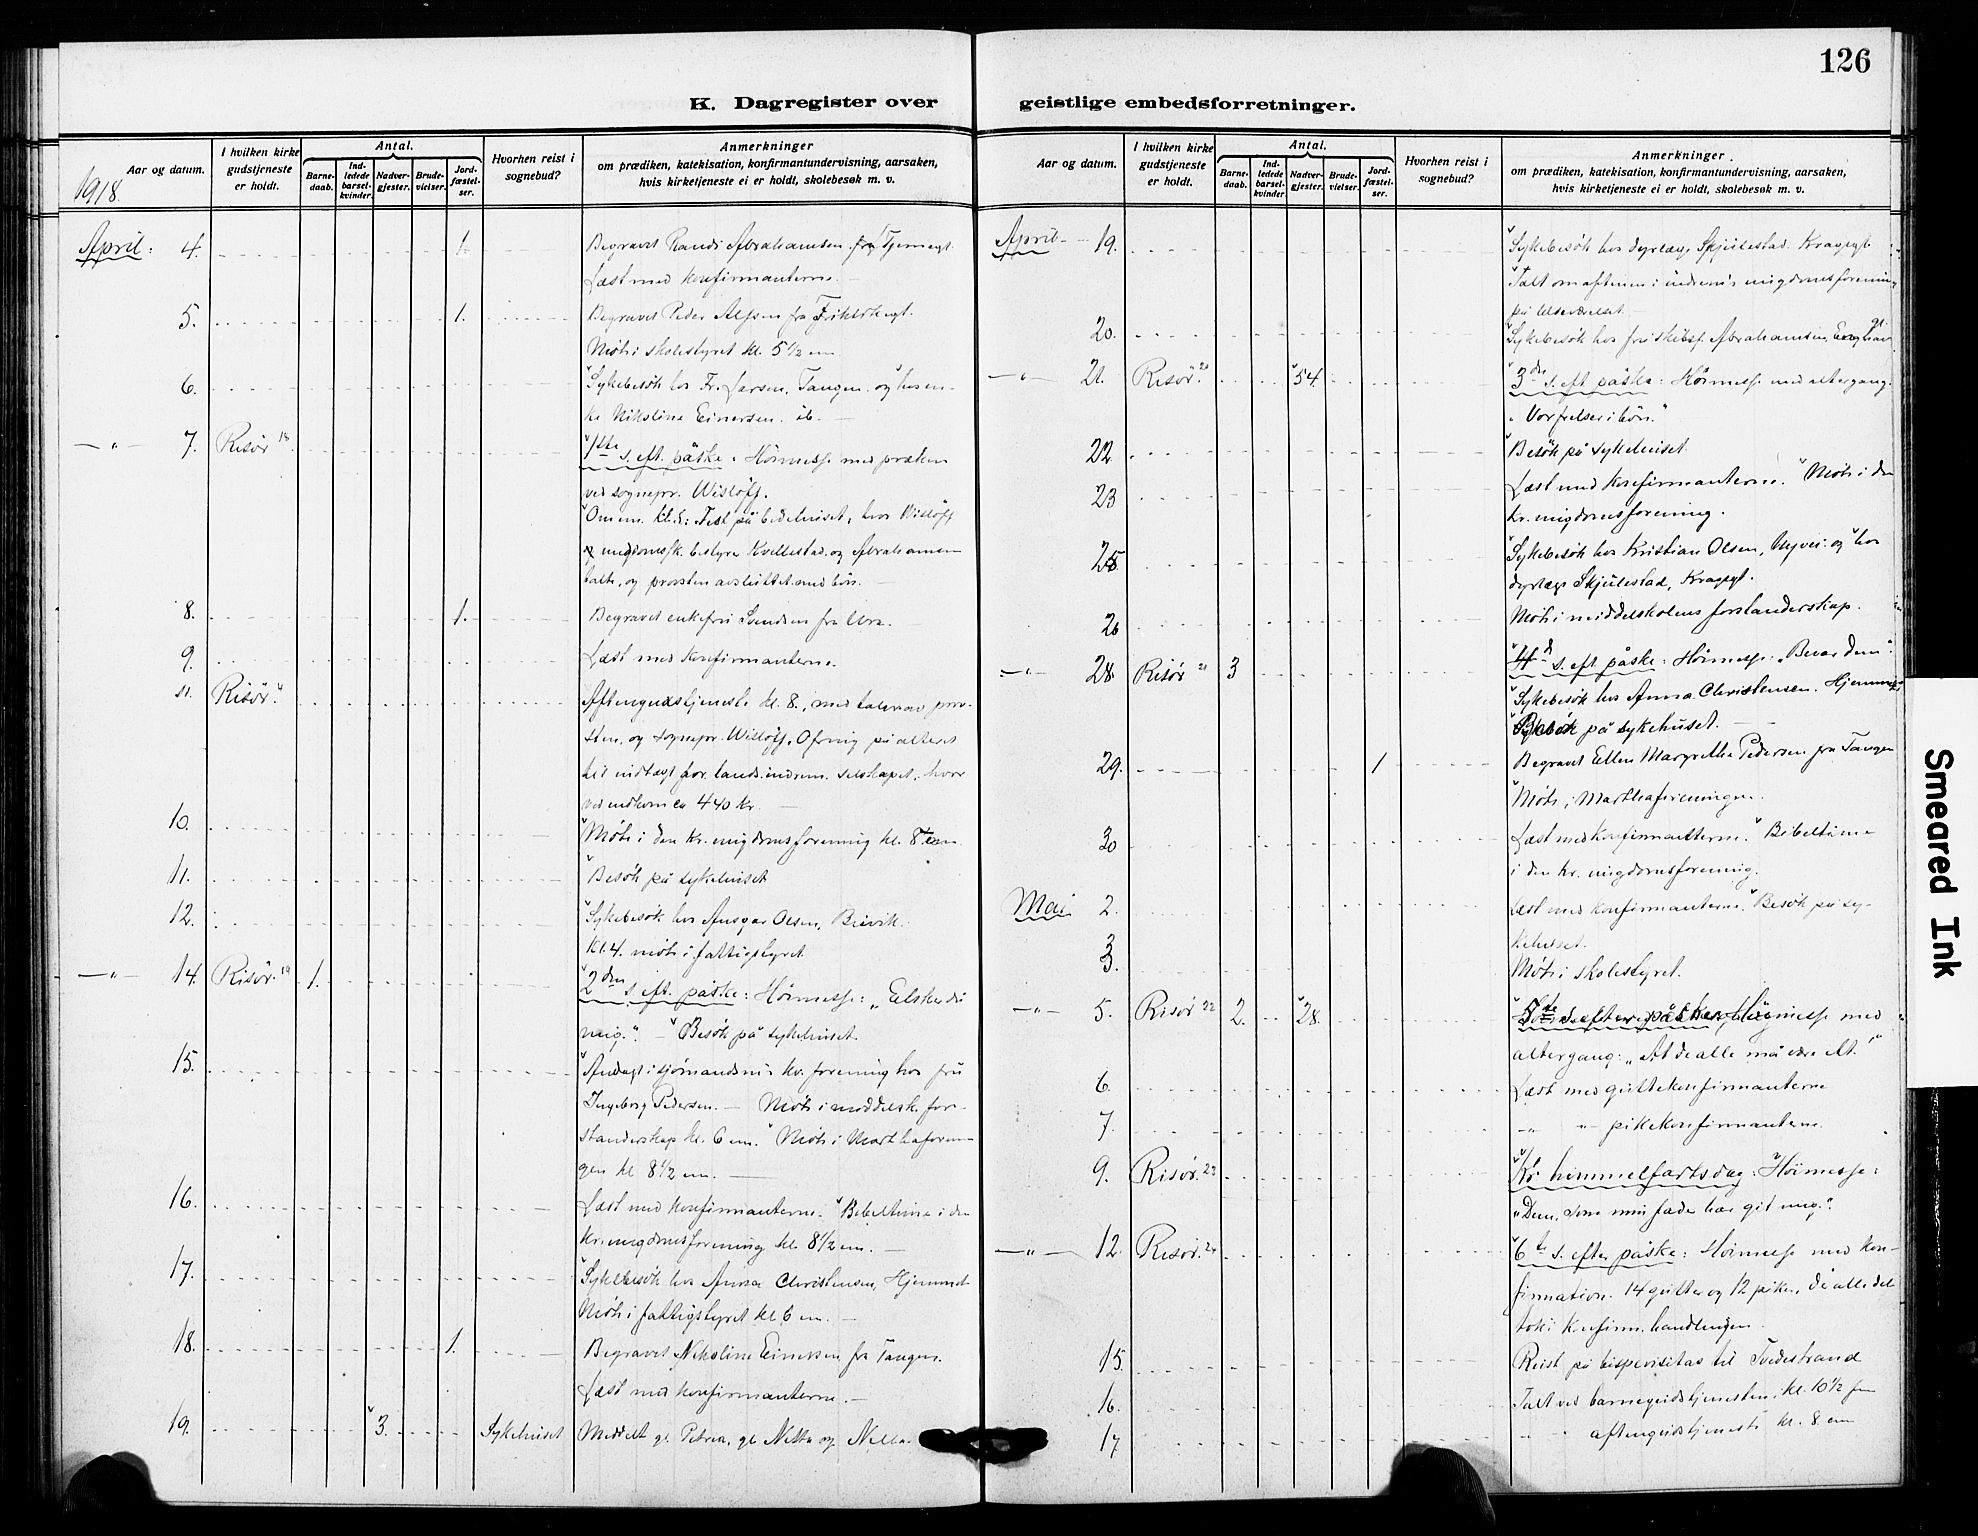 126
K. Dagregister over geistlige embedsforretninger.
Aar og datum.
I hvilken kirke gudstjeneste er holdt.
Antal.
Barne-daab.
Ind-ledede barsel-kvinder.
Nadver-gjester.
Brude-vielser.
Jord-fæstel-ser.
Hvorhen reist i sognebud?
Anmerkninger
om prædiken, katekisation, konfirmantundervisning, aarsaken,
hvis kirketjeneste ei er holdt, skolebesøk m. v.
1918.
April: 4. 1. Begravet Randi Abrahamsen fra Tjernsgt.
Læst med konfirmanterne.
5. 1. Begravet Peder Alfsen fra
Møte i skolestyret kl. 5 1/2 em
6. Sykebesøk hos Fr. Larsen, Tangen og hos en-
ke Nikoline Einersen. ib.
—"— 7. Risør 18 1ste s. eft. påske. Høimesse med præken
ved sognepr. Wisløff.
Fest på bedehuset, hvor Wisløff
ungdomssk. bestyrer Kvellestad og Abrahamsen
talte, og provsten avsluttet med bøn.
8. 1. Begravet enkefru Svendsen fra Ura.
9. Læst med konfirmanterne.
11. Risør. Aftengudstjeneste kl. 8, med taler av prov-
sten, og sognepr. Wisløff. Ofring på alteret
til indtægt for lands. indrem. selskapet, hvor
ved indkom ca 440 kr.
10. Møte i den kr. ungdomsforening kl. 8
11. Besøk på sykehuset
12. Sykebesøk hos Ansgar Olsen, Buvik.
Kl. 4. møte i fattigstyret
—"— 14. Risør. 19 1. 2den s. eft. påske: Høimesse: „Elsker du
mig". — Besøk på sykehuset.
15. Andagt i sjømandsmis. kv. forening hos fru
Ingeborg Pedersen. — Møte i middelsk. for-
standerskap kl. 6 em. Møte i Marthaforenin-
gen kl 8 1/2 em.
16. Læst med konfirmanterne. Bibeltime i den
kr. ungdomsforening kl. 8 1/2 em.
17. Sykebesøk hos Anna Christensen, Hjemmet
Møte i fattigstyret kl. 6 em.
18. 1. Begravet Nikoline Einersen fra Tangen.
Læst med konfirmanterne.
19. 3. Sykehuset Meddelt gl. Petrea, gl. Netta og Nella.
K. Dagregister over geistlige embedsforretninger.
Aar og datum.
I hvilken kirke gudstjeneste er holdt.
Antal.
Barne-daab.
Ind-ledede barsel-kvinder.
Nadver-gjester.
Brude-vielser.
Jord-fæstel-ser.
Hvorhen reist i sognebud?
Anmerkninger.
om prædiken, katekisation, konfirmantundervisning, aarsaken,
hvis kirketjeneste ei er holdt, skolebesøk m. v.
April 19. Sykebesøk hos dyrlæge Skjulestad. Kragsgt.
Talt om aftenen i indremis. ungdomsforening
på leseværelset.
20. Sykebesøk hos fru skibsf. Abrahamsen,
—"— 21. Risør. 20 54. 3die s. eft påske: Høimesse med altergang.
„Vor frelser i bøn."
22. Besøk på sykehuset.
23 Læst med konfirmanterne. Møte i den
kr. ungdomsforening.
25. Sykebesøk hos Kristian Olsen, Nyvei. og hos
dyrlæge Skjulestad, Kragsgt.
26 Møte i middelskolens forstanderskap.
—"— 28. Risør 21 3 4d s. eft påske: Høimesse: „Bevar dem".
Sykebesøk hos Anna Christensen. Hjemmet
Besøk på sykehuset.
29. 1 Begravet Ellen Margrethe Pedersen fra Tangen
Møte i Marthaforeningen.
30 Læst med konfirmanterne. Bibeltime
i den kr. ungdomsforening.
Mai 2. Læst med konfirmanterne. Besøk på sy-
kehuset.
3. Møte i skolestyret.
—"— 5. Risør 22 2. 28. 5te s. efter påske. Høimesse med
altergang: „At de alle må være ét!"
6. Læst med guttekonfirmanterne
7. —"— —"— pikekonfirmanterne.
9. Risør. 23 Kr. himmelfartsdag: Høimesse:
„Dem, som min fader har git mig."
—"— 12. Risør. 24 6te s. efter påske: Høimesse med kon-
firmation. 14 gutter og 12 piker. De alle del
tok i konfirm. handlingen.
15. Reist på bispevisitas til Tvedestrand
16. Talt ved barnegudstjenesten. kl. 10 1/2 fm
17 " " aftengudstjeneste kl. 8 em
Smeared Ink